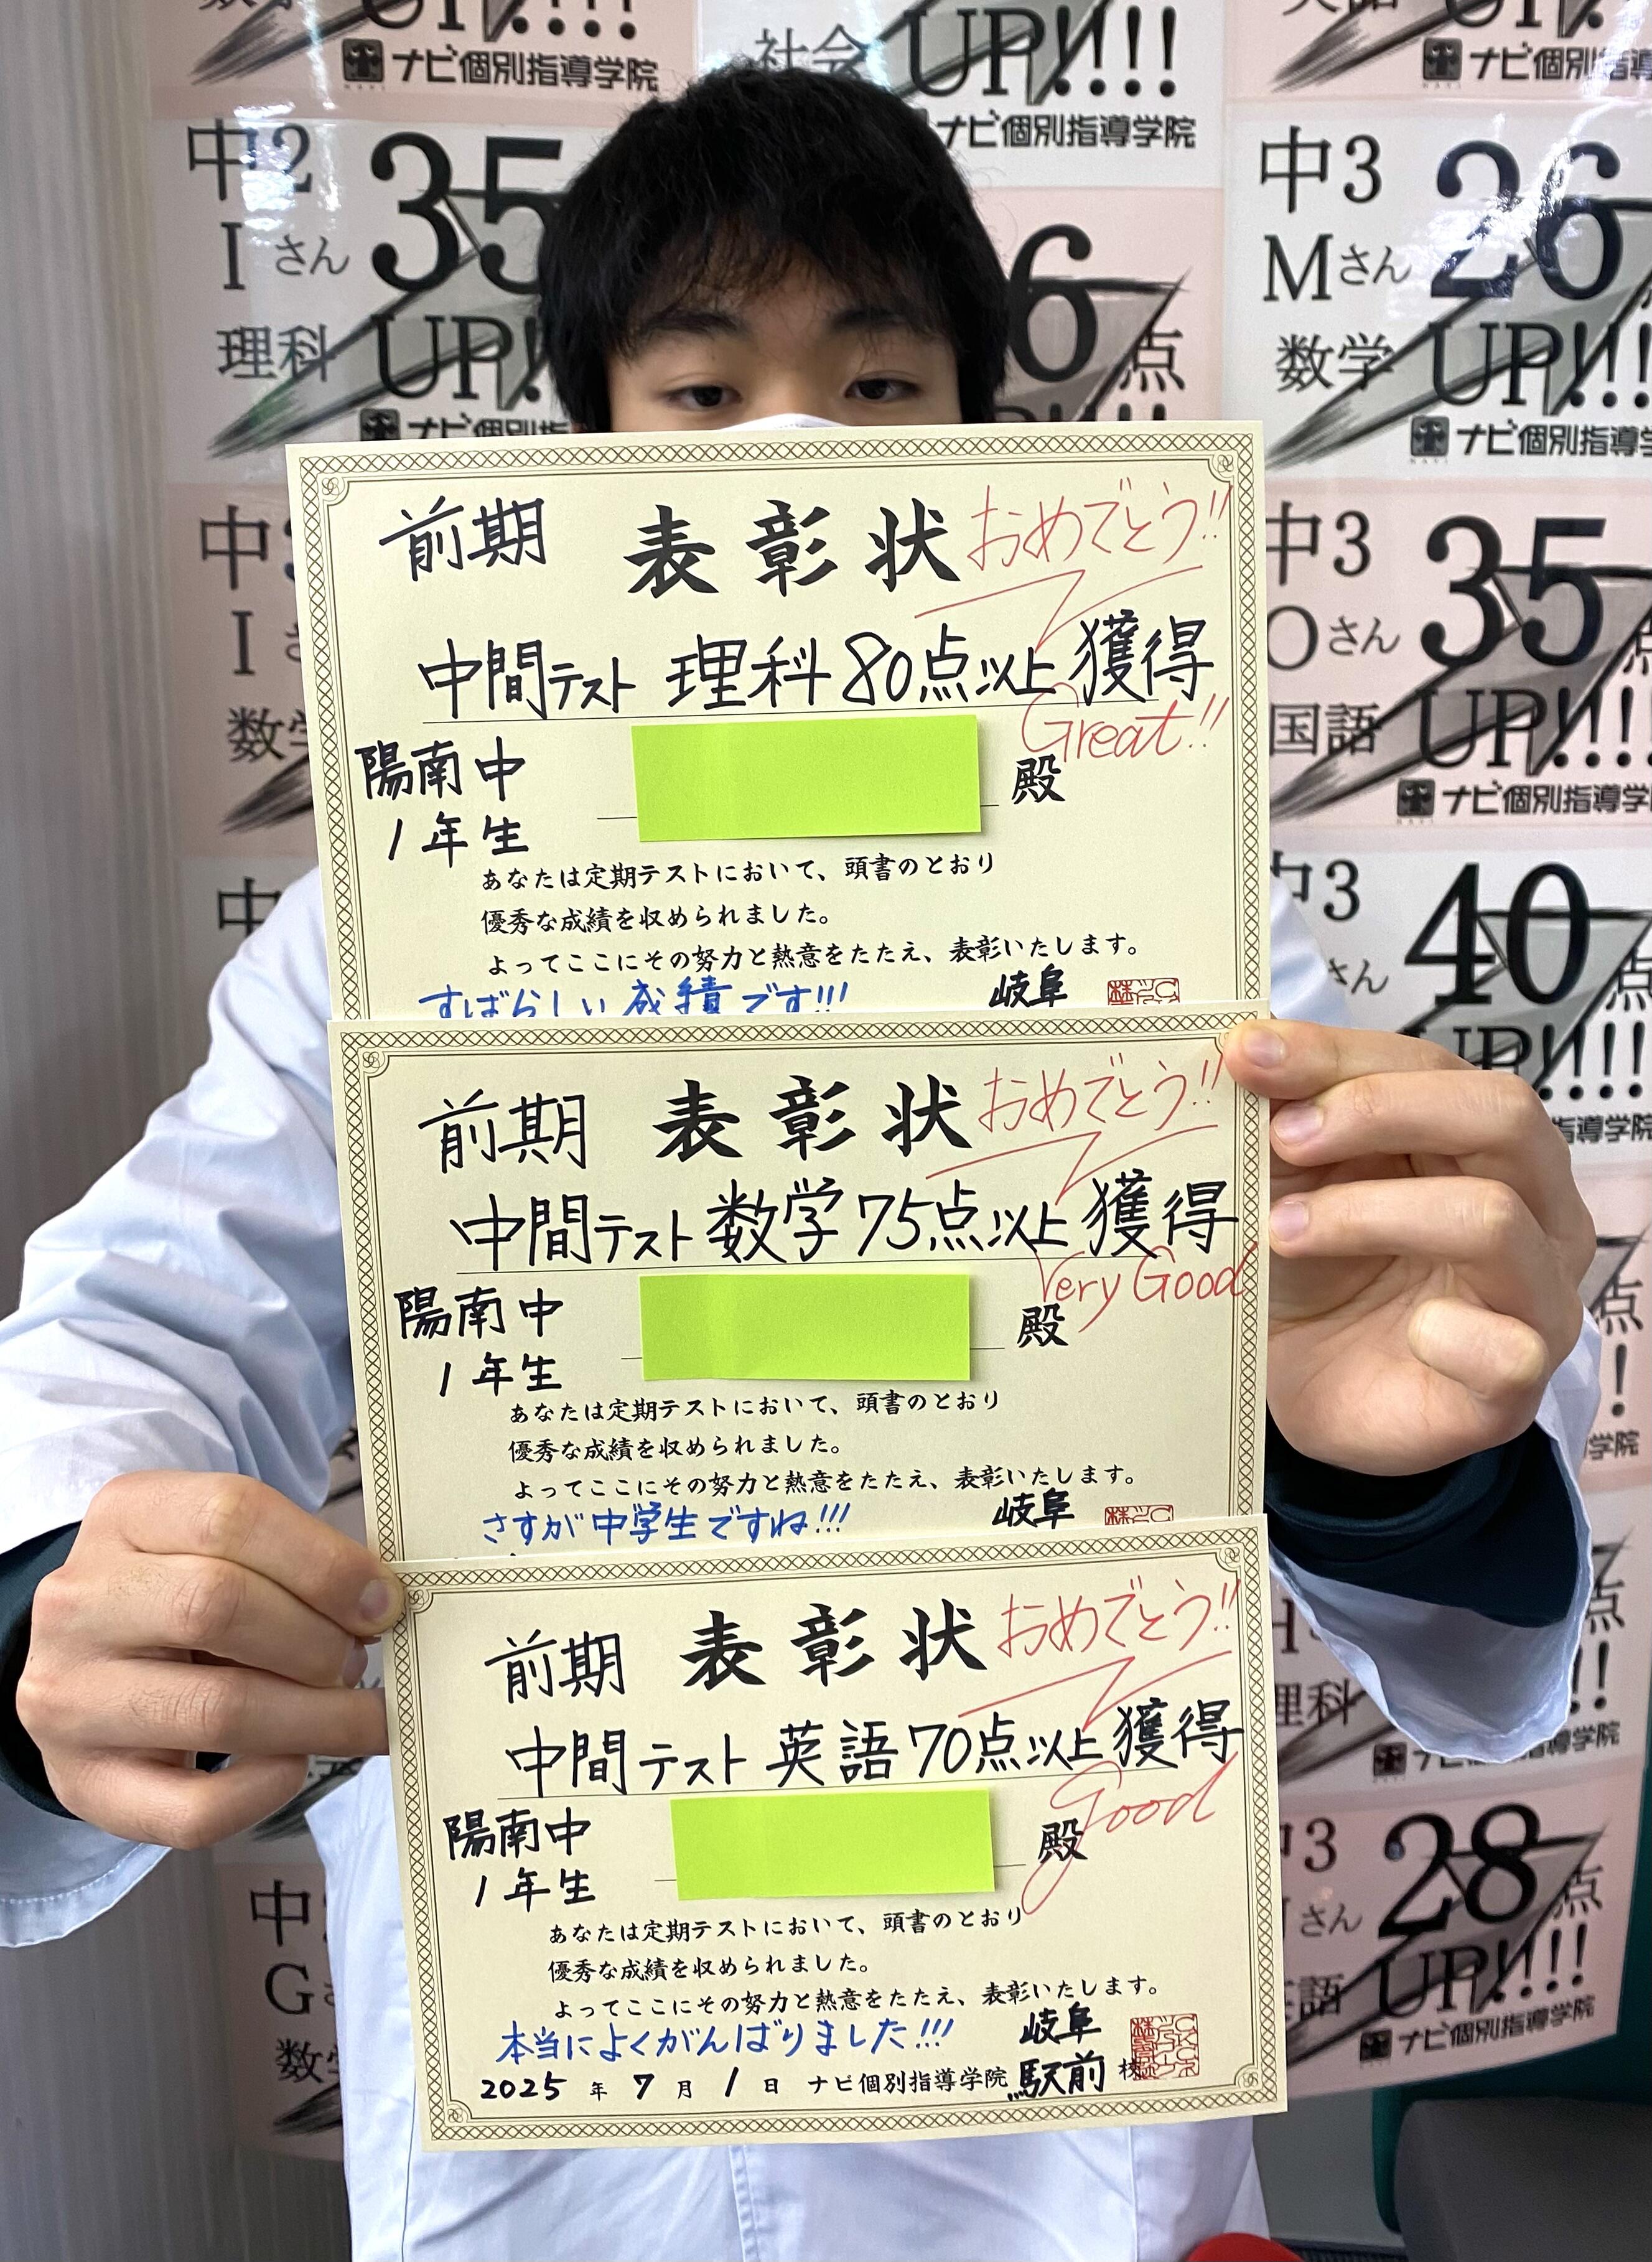 UP!!!!
ナビ個別指導学院
社会 UP!!!!
ナビ個別指導学院
UP!!!!
ナビ個別指導
中2
Iさん
理科
35
UP!
6
点
中3
Mさん
数学
26
UP!!!
ナビ個別指導学
中
I
数学
中3
Oさん
国語
35
点
UP!!!!
ナビ個別指導学
中3
さん
40
点
UP!!!!
指導学院
前期 表彰状 おめでとう!!
中間テスト 理科 80点以上 獲得
Great!!
陽南中
1年生
殿
あなたは定期テストにおいて、頭書のとおり
優秀な成績を収められました。
よってここにその努力と熱意をたたえ、表彰いたします。
すばらしい成績です!!!
岐阜
前期 表彰状 おめでとう!!
中間テスト 数学 75点以上 獲得
Very Good
陽南中
1年生
殿
あなたは定期テストにおいて、頭書のとおり
優秀な成績を収められました。
よってここにその努力と熱意をたたえ、表彰いたします。
さすが中学生ですね!!!
岐阜
前期 表彰状 おめでとう!!
中間テスト 英語 70点以上 獲得
Good
陽南中
1年生
殿
あなたは定期テストにおいて、頭書のとおり
優秀な成績を収められました。
よってここにその努力と熱意をたたえ、表彰いたします。
本当によくがんばりました!!!
岐阜
2025年7月1日 ナビ個別指導学院 駅前 校
点
学院
点
理科
!!
導学院
中
G
数学
3
さん
語
28
点
UP!!!!
ナビ個別指導学院